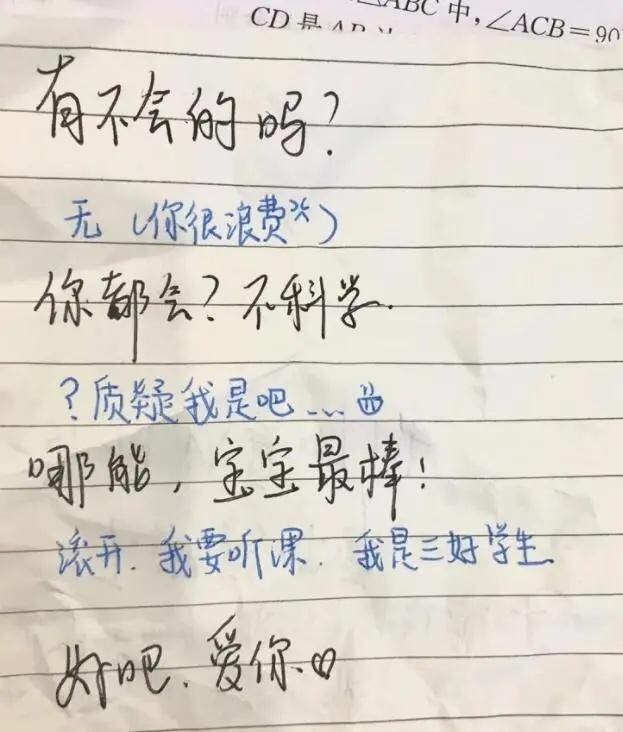 △ABC 中,∠ACB=90
CD 是 AB
有不会的吗?
无 (你很浪费)
你都会?不科学.
?质疑我是吧...
哪能,宝宝最棒!
滚开.我要听课.我是三好学生
好吧.爱你.♡